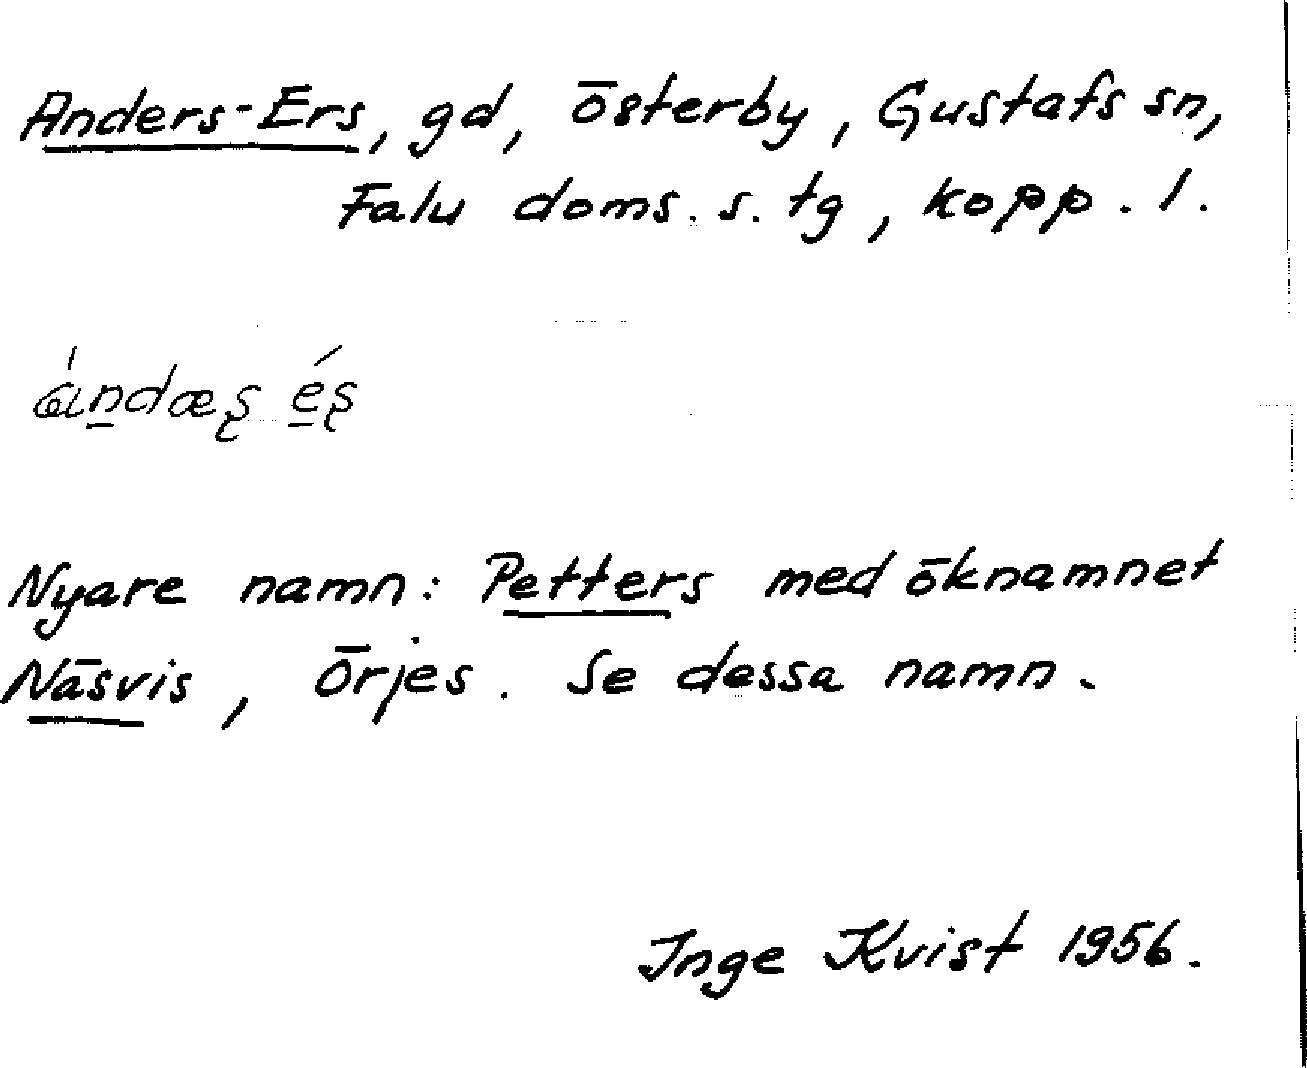 Anders-Ers, gd, Österby, Gustafs sn,
Falu doms. s. tg, Kopp. l.
Nyare namn: Petters med öknamnet
Näsvis, Örjes. Se dessa namn.
Inge Kvist 1956.